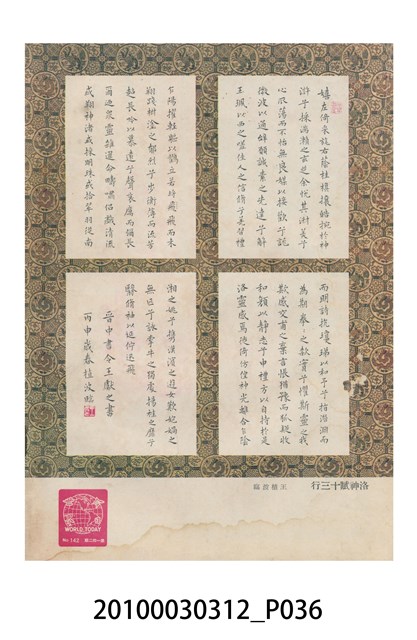 嬉左倚采旄右蔭桂旗攘皓捥於神
滸兮採湍瀨之玄芝余悅其淑美兮
心振蕩而不怡無良媒以接歡兮託
微波以通辭願誠素之先達兮解
玉珮以要之嗟佳人之信脩兮羌習禮
而明詩抗瓊珶以和予兮指潛淵而
為期執拳之款實兮懼斯靈之我
欺感交甫之棄言悵猶豫而狐疑收
和顏以靜志兮申禮防以自持於是
洛靈感焉徙倚彷徨神光離合乍陰
乍陽擢輕軀以鶴立若將飛而未
翔踐椒塗之郁烈兮步衡薄而流芳
超長吟以慕遠兮聲哀厲而彌長
爾迺衆靈雜遝命疇嘯侶戲清流
或翔神渚或採明珠或拾翠羽從南
湘之妃兮攜漢濱之遊女歎匏媧之
無匹兮詠牽牛之獨處揚袿之
翳脩袖以延佇
晉中書令王獻之書
丙申歲春植波臨
洛神賦十三行 王植波臨
WORLD TODAY
No 142 第一四二期
20100030312_P036